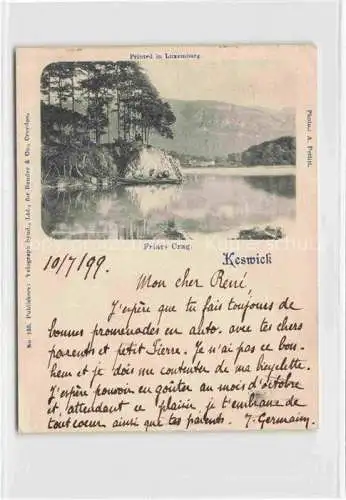 Printed in Luxemburg.
No 135. Publishers: Telegraph Synd., Ltd., for Bender & Co., Croydon.
Photo: A. Pettitt.
Friars Crag.
Keswick
10/7/99.
Mon cher René,
J'espère que tu fais toujours de
bonnes promenades en auto. avec tes chers
parents et petit Pierre. Je n'ai pas ce bon-
heur et je dois me contenter de ma bicyclette.
J'espère pouvoir en goûter au mois d'octobre
et, attendant ce plaisir, je t'embrasse de
tout coeur ainsi que tes parents. J. Germain.